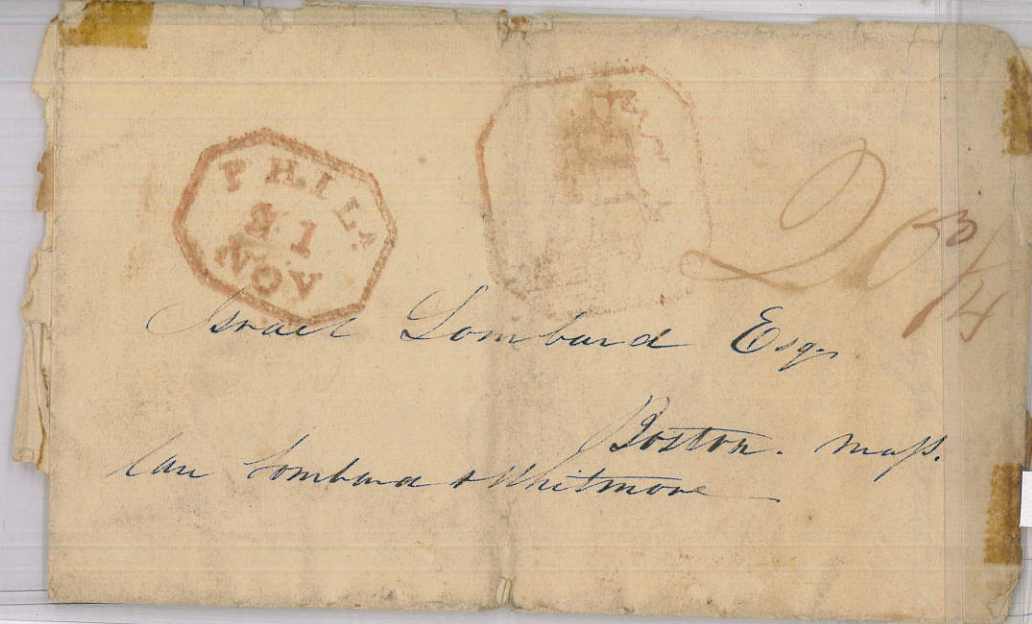 PHILA
21
NOV
Israel Lombard Esqr
Boston. Mass.
Care Lombard & Whitmore